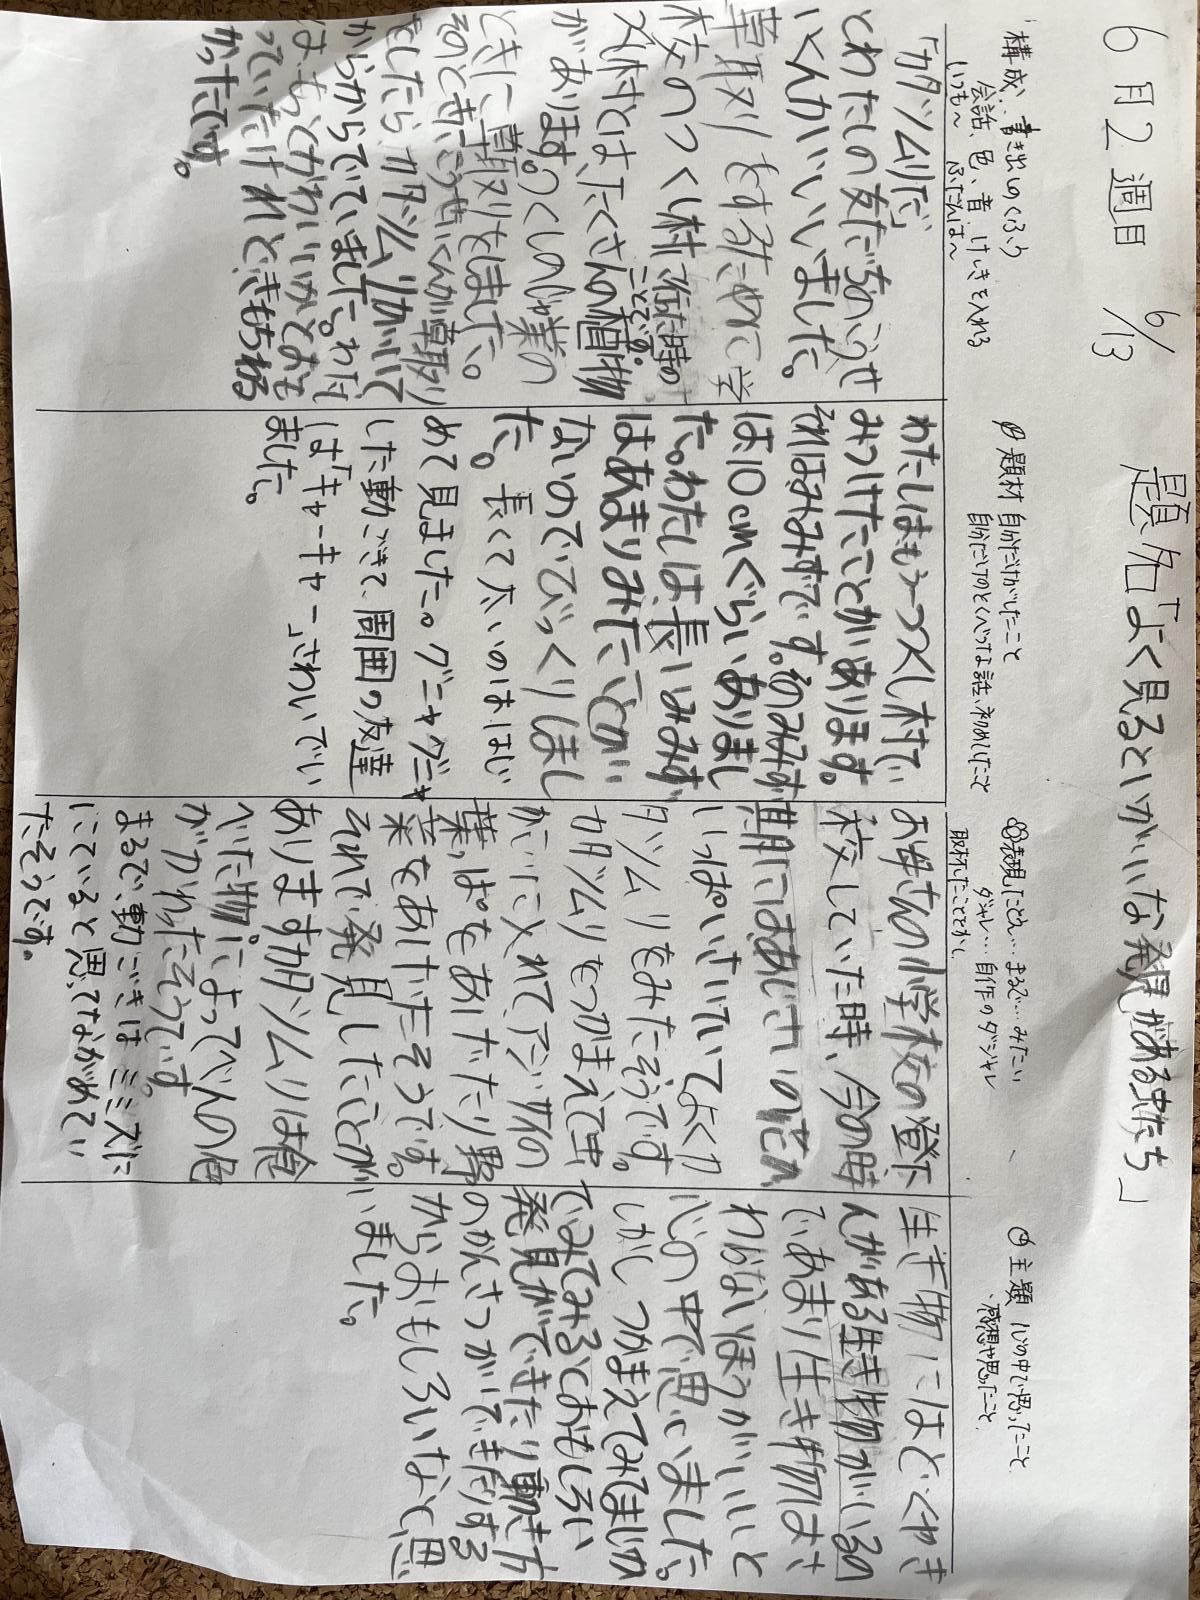 6月2週目 6/13 題名「よく見るといがいな発見がある虫たち」
構成…書き出しのくふう
会話、色、音 けしきを入れる
いつも〜 ふだんは〜
「カタツムリだ」
とわたしの友だちのこうせ
いくんがいいました。
草取りをするためで学
校のつくし村に行た時の
ことです。
つくし村とは、たくさんの植物
があります。つくしのじゅ業の
ときに草取りをしました。
そのときこうせいくんが草取り
をしたら、カタツムリがいて
からからでていました。わたし
は、もっとかわいいかとおも
っていたけれどきもちわる
かったです。
題材 自分だけがしたこと
自分だけのとくべつな話、初めてしたこと
わたしはもう一つつくし村で
みつけたことがあります。
それはみみずです。そのみみず
は10cmぐらいありまし
た。わたしは長いみみず
はあまりみたことが
ないのでびっくりしまし
た。長くて太いのははじ
めて見ました。グニャグニャ
した動ごきで、周囲の友達
は「キャーキャー」さわいでい
ました。
表現 たとえ…まるで…みたい
ダジャレ…自作のダジャレ
取材したことをかく
お母さんの小学校の登下
校していた時、今の時
期にはあじさいの花が
いっぱいさいていてよくカ
タツムリをみたそうです。
カタツムリをつかまえて虫
かごに入れてアジサイの
葉っぱをあげたり野
菜をあげたそうです。
それで発見したことが
あります。カタツムリは食
べた物によってべんの色
がかわったそうです。
まるで、動ごきはミミズに
にていると思ってながめてい
たそうです。
主題 心の中で思ったこと
感想や思ったこと
生き物にはどくやき
んがある生き物がいるの
であまり生き物はさ
わらないほうがいいと
心の中で思いました。
しかしつかまえてみてまじか
でみてみるとおもしろい
発見ができたり動き方
のかんさつができたりする
からおもしろいなと思
いました。